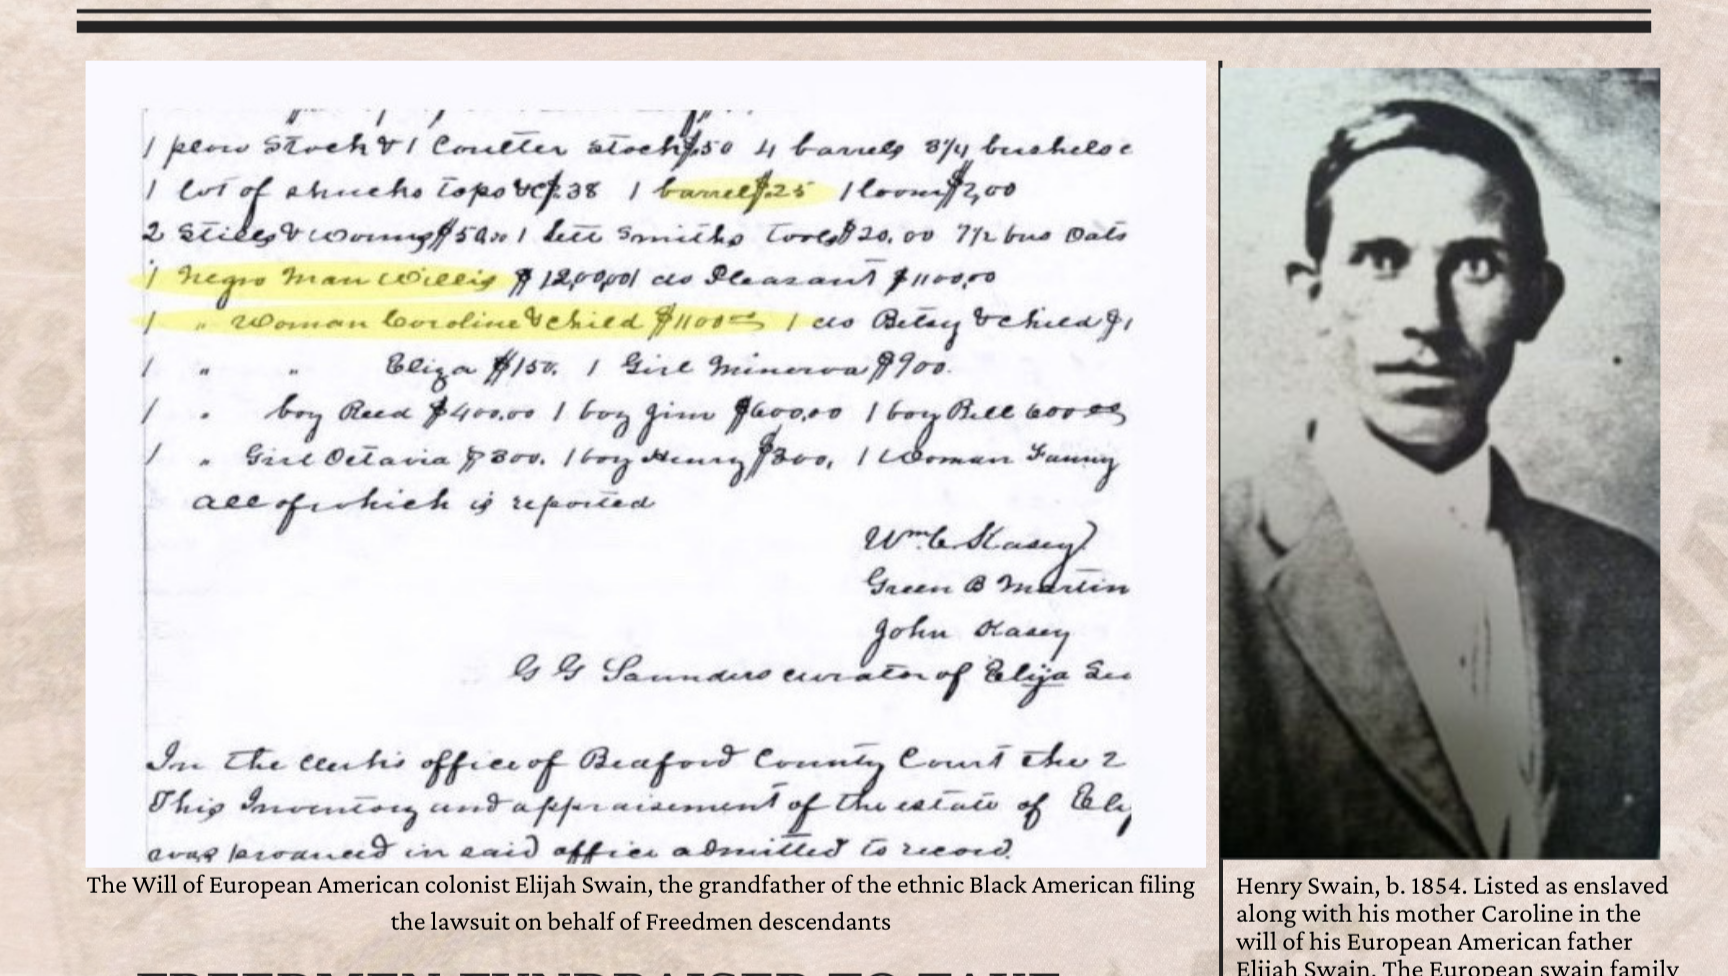 1 plow Stock & 1 Coulter stock $.50 4 barrels 3 3/4 bushels
1 lot of shucks tops &c $.38 1 barrel $.25 1 loom $2,00
2 Stills & worms $50.00 1 Sett Smiths tools $20.00 7 1/2 bus Oats
1 Negro Man Willis $1200,00 1 do Pleasant $1100,00
1 " Woman Caroline & child $1100.00 1 do Betsy & child $1
1 " " Eliza $150. 1 Girl Minerva $900.
1 " boy Reed $400.00 1 boy Jim $600.00 1 boy Bill 600.00
1 " Girl Octavia $300. 1 boy Henry $300, 1 Woman Fanny
all of which is reported
Wm C. Kasey
Green B Martin
John Kasey
G G Saunders curator of Elija
In the clerks office of Bedford County Court the 2
This Inventory and appraisement of the estate of Elij
was produced in said office admitted to record.
The Will of European American colonist Elijah Swain, the grandfather of the ethnic Black American filing
the lawsuit on behalf of Freedmen descendants
Henry Swain, b. 1854. Listed as enslaved
along with his mother Caroline in the
will of his European American father
Elijah Swain. The European swain family